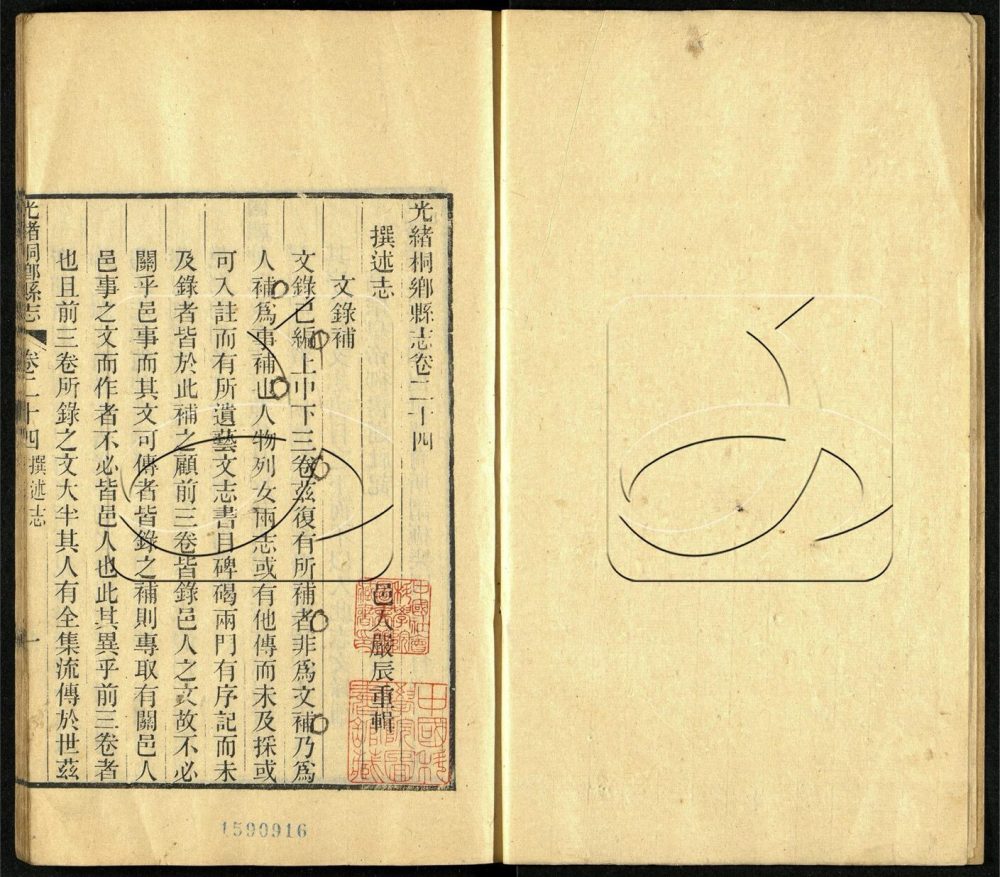 光緒桐鄕縣志卷二十四
撰述志
邑人嚴辰重輯
文錄補
文錄已編上中下三卷茲復有所補者非爲文補乃爲
人補爲事補也人物列女兩志或有他傳而未及採或
可入註而有所遺藝文志書目碑碣兩門有序記而未
及錄者皆於此補之顧前三卷皆錄邑人之文故不必
關乎邑事而其文可傳者皆錄之補則專取有關邑人
邑事之文而作者不必皆邑人也此其異乎前三卷者
也且前三卷所錄之文大半其人有全集流傳於世茲
光緒桐鄕縣志
卷二十四
撰述志
一
1590916